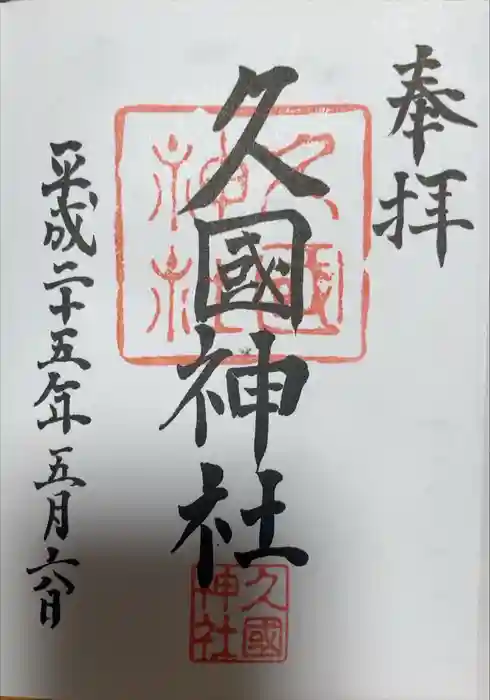 奉拝
久國神社
平成二十五年五月六日
久國神社
久國神社